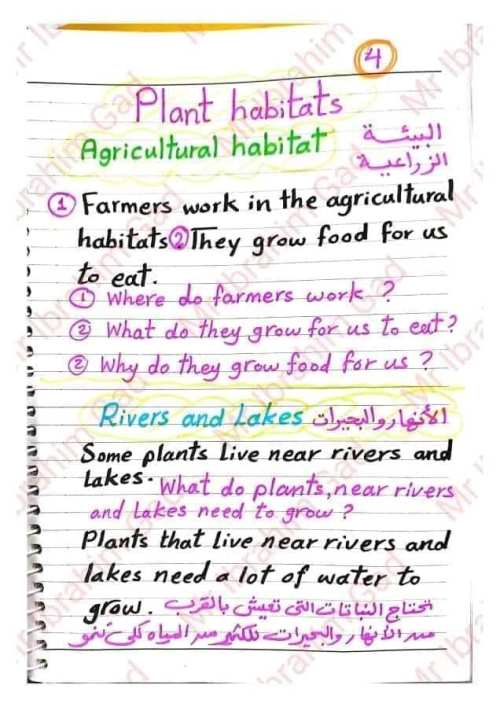 4
Plant habitats
Agricultural habitat البيئة
الزراعية
① Farmers work in the agricultural
habitats ② They grow food for us
to eat.
① Where do farmers work ?
② What do they grow for us to eat?
② Why do they grow food for us ?
Rivers and Lakes الأنهار والبحيرات
Some plants live near rivers and
Lakes. What do plants, near rivers
and Lakes need to grow ?
Plants that live near rivers and
lakes need a lot of water to
grow. تحتاج النباتات التى تعيش بالقرب
من الأنهار والبحيرات للكثير من المياه كى تنمو
Mr Ibrahim Gad